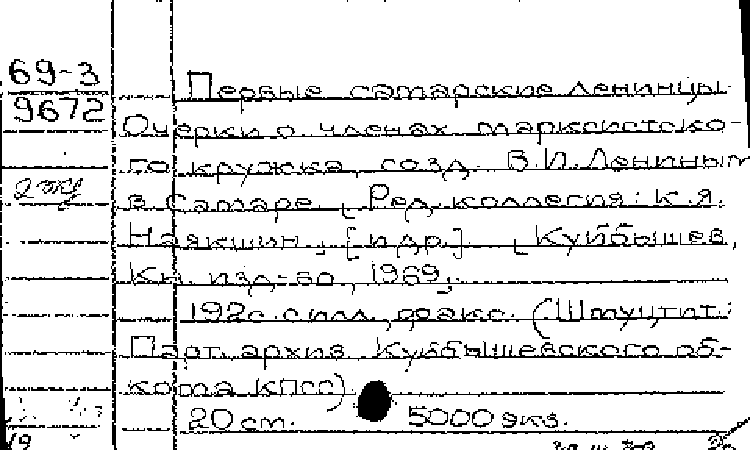 69-3
9672
Первые самарские ленинцы
Очерки о членах марксистско-
го кружка, созд. В.И. Лениным
в Самаре. [Ред. коллегия: К.Я.
Наякшин, [и др.] [Куйбышев,
Кн. изд-во, 1969,
192 с. с илл., факс. (Шмуцтит.:
Парт. архив Куйбышевского об-
кома КПСС)
20 см. 5000 экз.